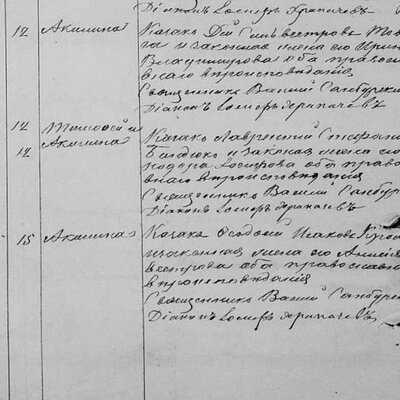 Діаконъ Іосифъ Храпачевъ
12 Акилина Козакъ Сильвестровъ
и законная жена его Ирин
Владимирова оба право
внаго вѣроисповѣданія
Священникъ Василій Самбурски
Діаконъ Іосифъ Храпачевъ
12 Тимоѳей и Козакъ Лаврентій Стефан
12 Акилина и законная жена
Іосифова оба право
внаго вѣроисповѣданія
Священникъ Василій Самбур
Діаконъ Іосифъ Храпачевъ
15 Акилина Козакъ Исаковъ
и законная жена его
вестрова оба православна
вѣроисповѣданія
Священникъ Василій Самбурск
Діаконъ Іосифъ Храпачевъ